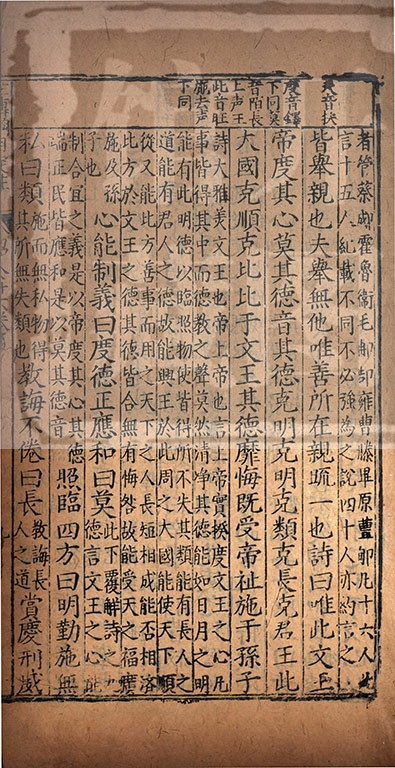 者管蔡郕霍魯衛毛聃郜雍曹滕畢原酆郇凡十六人此
言十五人紀載不同不必強為之說四十人亦約言之
皆舉親也夫舉無他唯善所在親疏一也詩曰唯此文王
帝度其心莫其德音其德克明克明克類克長克君王此
大國克順克比比于文王其德靡悔既受帝祉施于孫子
詩大雅美文王也帝上帝也言上帝實揆度文王之心凡
事皆得其中而德教之聲莫然清凈其德能如日月之明
能有此明德以臨照物使皆得所不失其類能有長人之
道能有君人之德故能興王於此周之大國能使天下順
從又能比方善事而用之天下之人長短相成能否相濟
比方於文王之德其德皆合無有悔吝故能受天之福廣
施及孫子也
心能制義曰度德正應和曰莫
此下覆解詩之九德言文王之心能
制合宜之義是以帝度其心其德
端正民皆應和是以莫其德音
照臨四方曰明勤施無
私曰類
施而無私物得其所無失類也
教誨不倦曰長
教誨長人之道
賞慶刑威
度音鐸
下同莫
音陌長
上声王
此音旺
施去声
下同